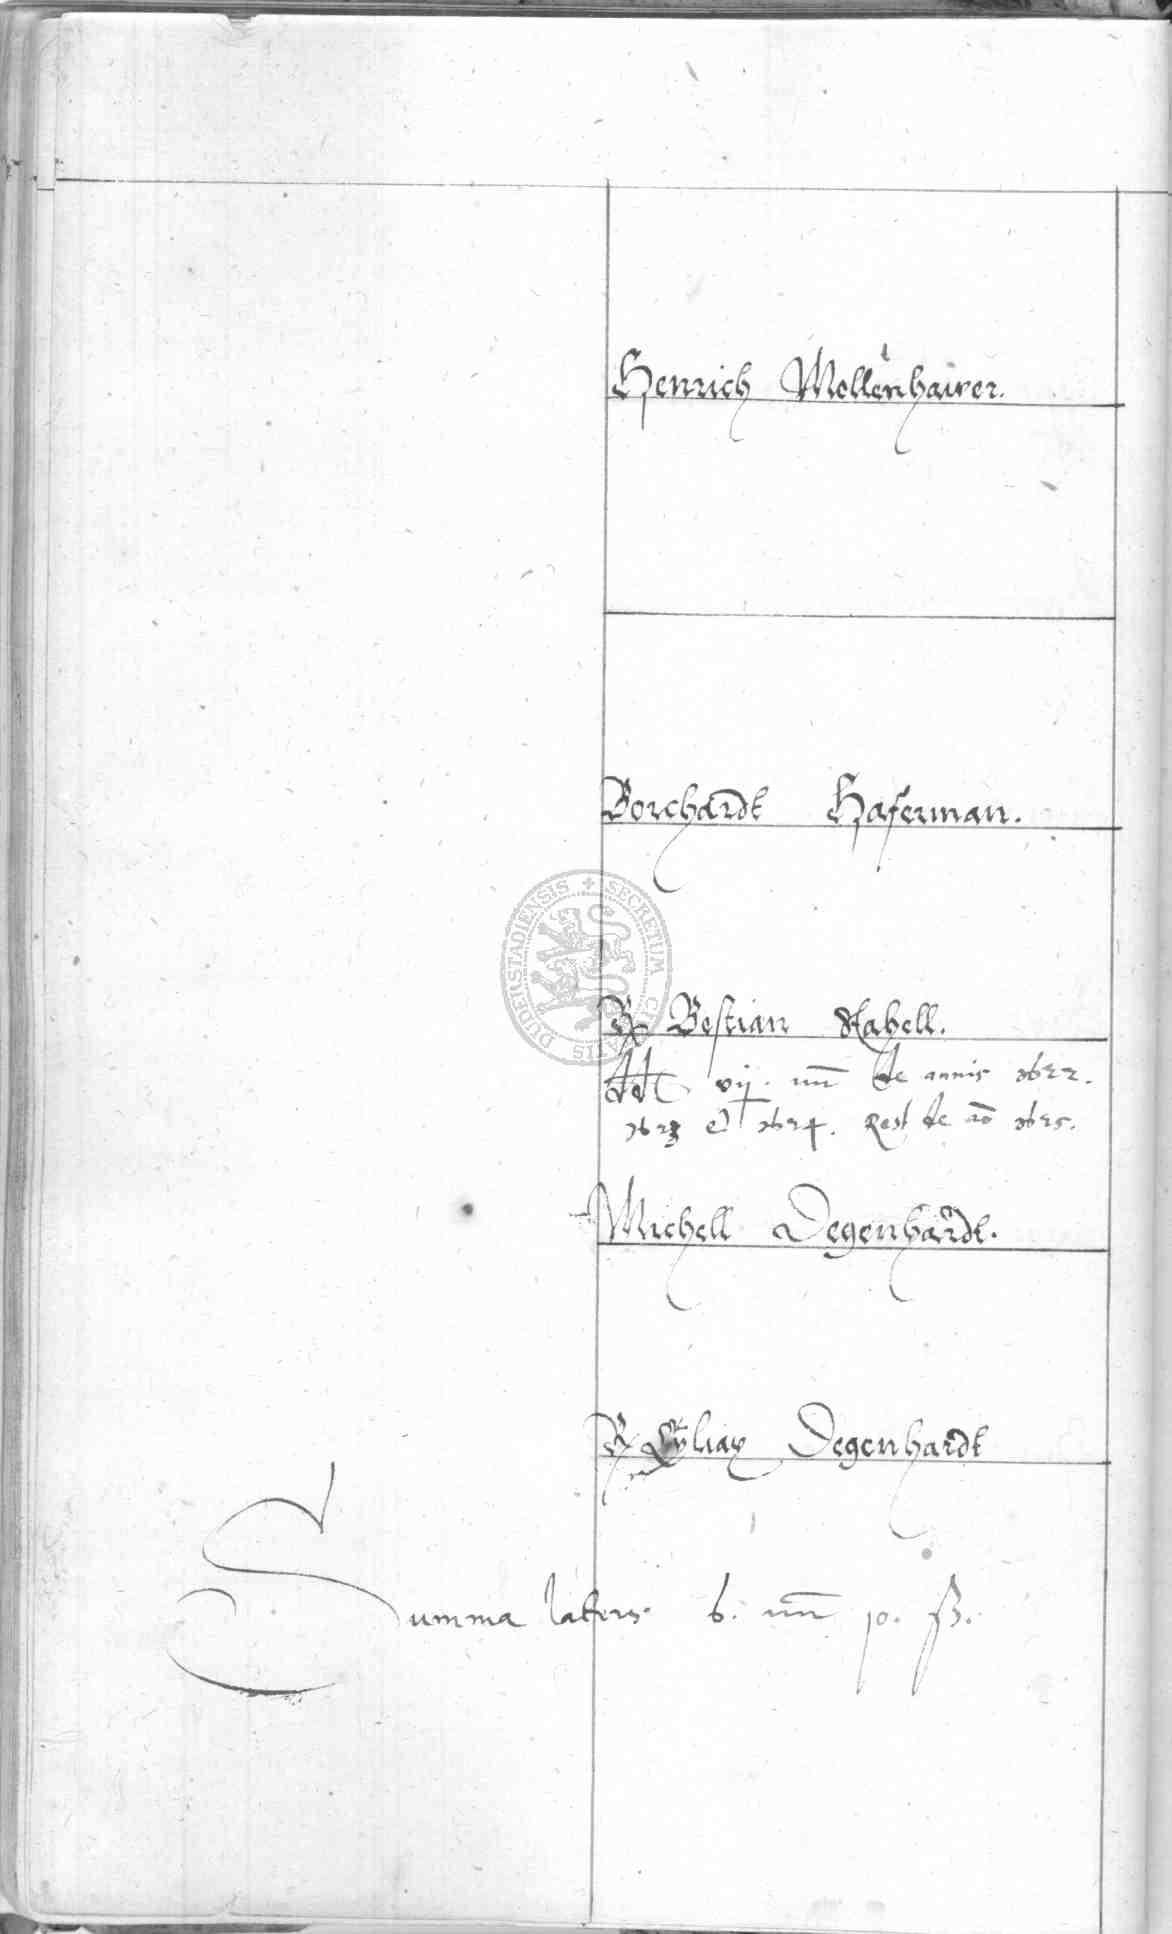 Henrich Mollenhawer.
Borchardt Haferman.
SECRETUM CIVITATIS DUDERSTADIENSIS
Bestian Nabell.
vij. de annis 1622.
1623 et 1624. Rest de ao 1625.
Michell Degenhardt.
Cyliax Degenhardt
Summa lateris 6. 10. ß.